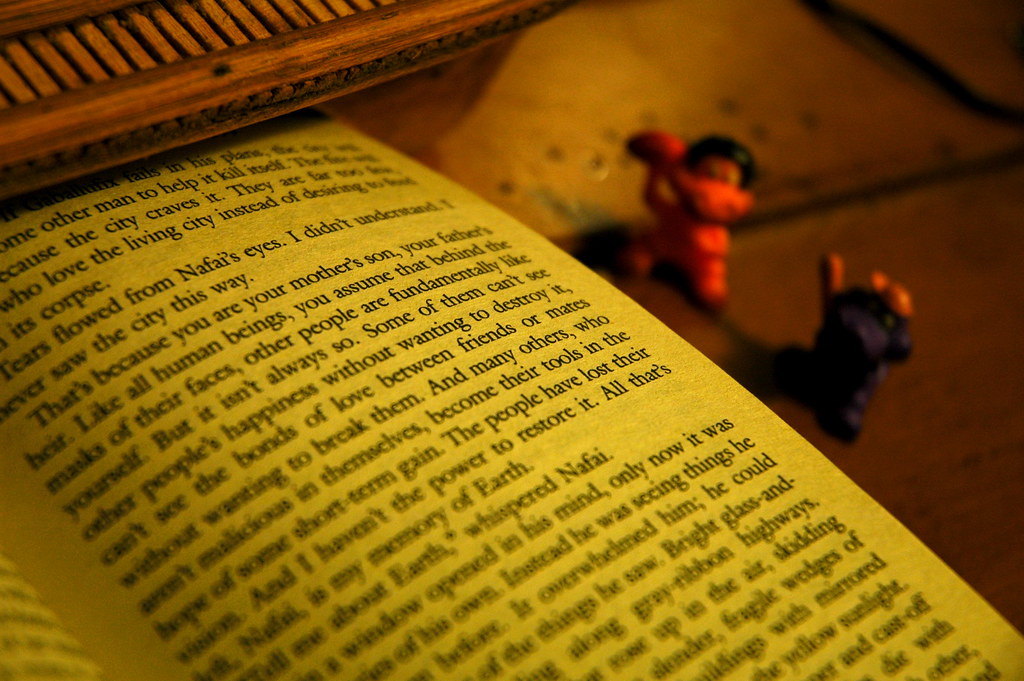 fails in his plans, the
some other man to help it kill itself. The
because the city craves it. They are far too
who love the living city instead of desiring to
its corpse.
Tears flowed from Nafai's eyes. I didn't understand. I
never saw the city this way.
That's because you are your mother's son, your father's
heir. Like all human beings, you assume that behind the
masks of their faces, other people are fundamentally like
yourself. But it isn't always so. Some of them can't see
other people's happiness without wanting to destroy it,
can't see the bonds of love between friends or mates
without wanting to break them. And many others, who
aren't malicious in themselves, become their tools in the
hope of some short-term gain. The people have lost their
vision. And I haven't the power to restore it. All that's
left, Nafai, is my memory of Earth.
Tell me about Earth," whispered Nafai.
a window opened in his mind, only now it was
of his own. Instead he was seeing things he
before. It overwhelmed him; he could
of the things he saw. Bright glass-and-
along gray-ribbon highways.
rose up in the air, skidding
slender, fragile wedges of
buildings with mirrored
the yellow sunlight.
and cast-off
die with
other,